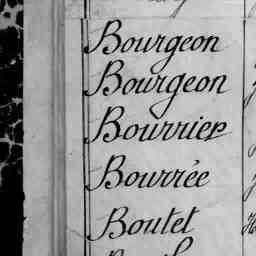 Bourgeon
Bourgeon
Bourrier
Bourrée
Boutet